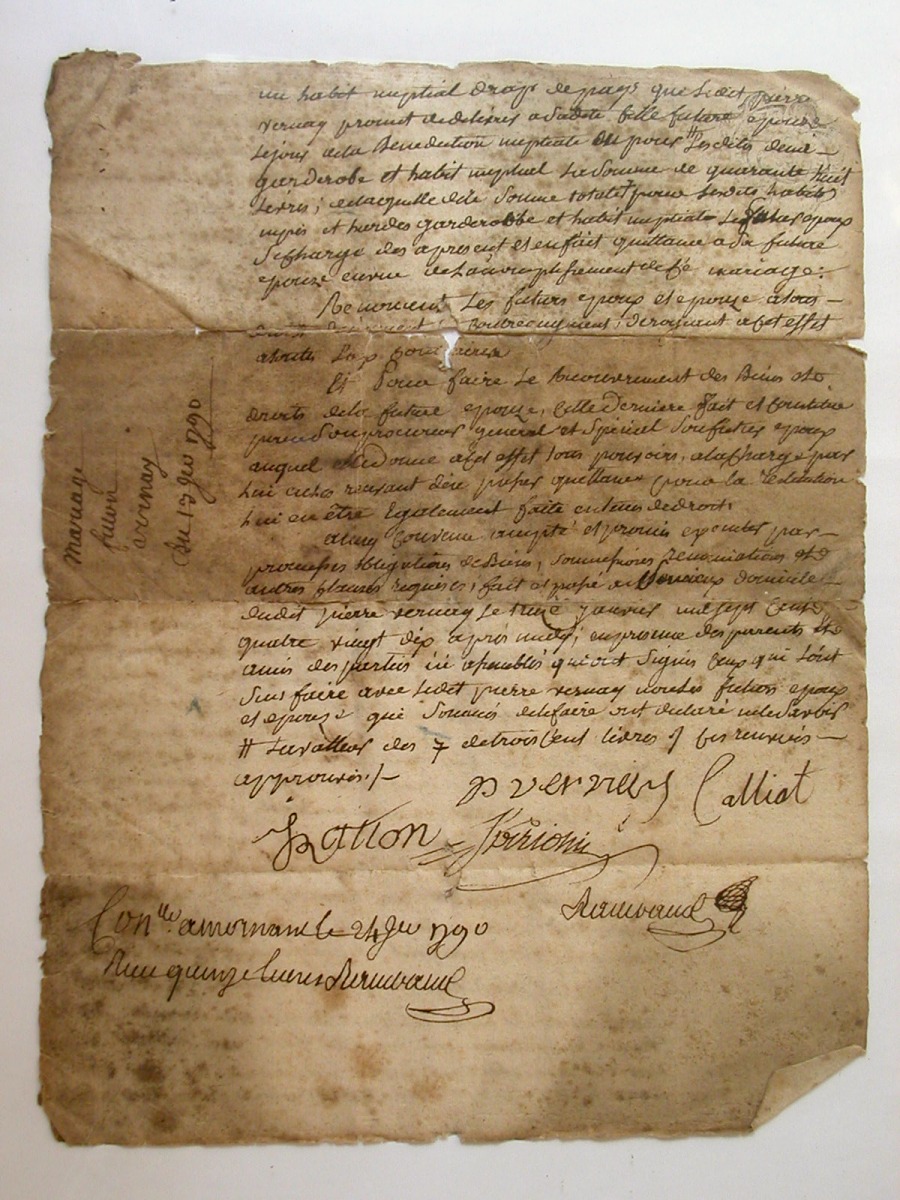 un habit nuptial drap de pays que ledit pierre
vernay promet de delivrer a ladite Celle future epouze
le jour de la Benediction nuptiale pour lesdits demi
garderobe et habit nuptial la Somme de quarante huit
livres; de laquelle dite Somme totale pour lesdits habits
nipés et hardes garderobbe et habit nuptial le futur epoux
Se charge des apresent et en fait quittance a Sa future
epouze en vue de l'accomplissement de ce mariage:
Renoncent les futurs epoux et epouze a tous
derogeant a cet effet
a toutes
Et Pour faire le Recouvrement des Biens et
droits de la future epouze, Cette Derniere fait et Constitue
pour Son procureur general et Special Son futur epoux
auquel elle Donne a cet effet tous pouvoirs, a la charge par
lui en les recevant d'en passer quittance pour la restitution
lui en être Egalement faite en tems de droit.
ainsy Convenu accepté et promis executer par
promesses obligations de Biens, Soumissions Renonciations et
autres Clauses requises; fait et passé au domicile
dudit pierre vernay le treize janvier mil sept Cent
quatre vingt dix après midy; en presence des parents et
amis des parties ici assemblés qui ont Signés Ceux qui l'ont
Sçu faire avec ledit pierre vernay non les futurs epoux
et epouze que Sommés de le faire ont declaré ne le Savoir
# la valleur des 7 de trois Cent livres // Ces renvois
approuvés ./.
P vervay Calliot
Raimbaud
Con.lle a mornant le 24 Jer 1790
Reçu quinze livres Raimbaud
Mariage
fulion
vernay
du 13 Jer 1790